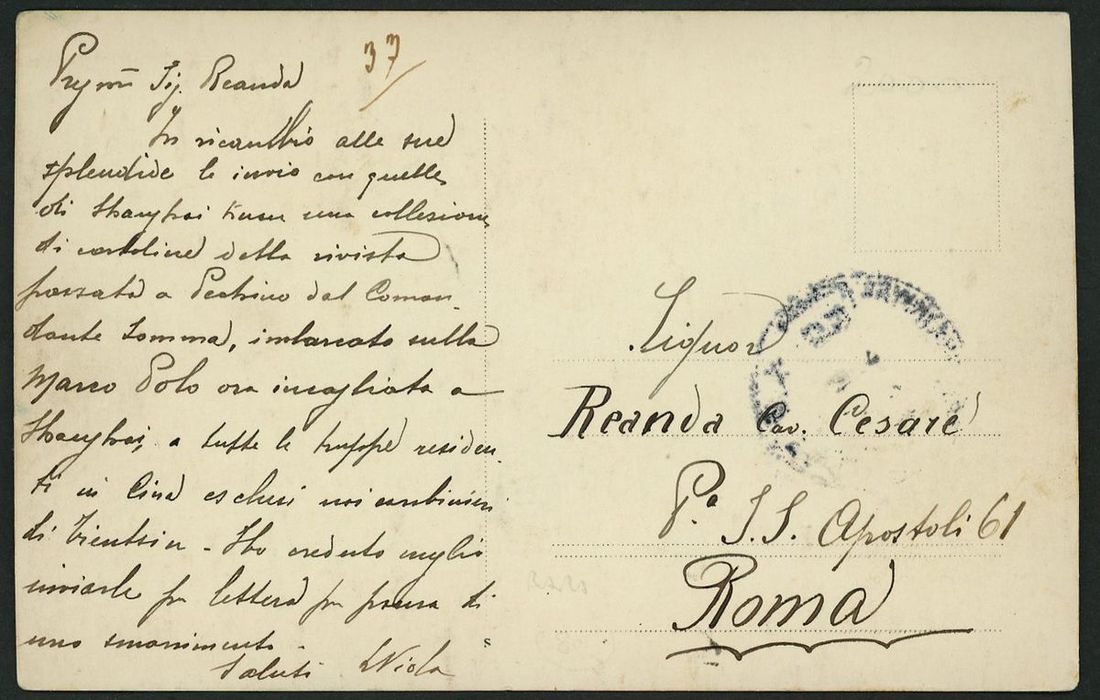 37
Preg.mo Sig. Reanda
In ricambio alle sue
splendide le invio con quelle
di Shanghai una collezione
di cartoline della rivista
passata a Pechino dal Coman
dante Somma, imbarcato sulla
Marco Polo ora incagliata a
Shanghai, a tutte le truppe residen
ti in Cina esclusi noi carabinieri
di Tientsin - Ho creduto meglio
inviarle per lettera per paura di
uno smarrimento -
Saluti Viola
Signor
Reanda Cav. Cesare
P.a S.S. Apostoli 61
Roma
s